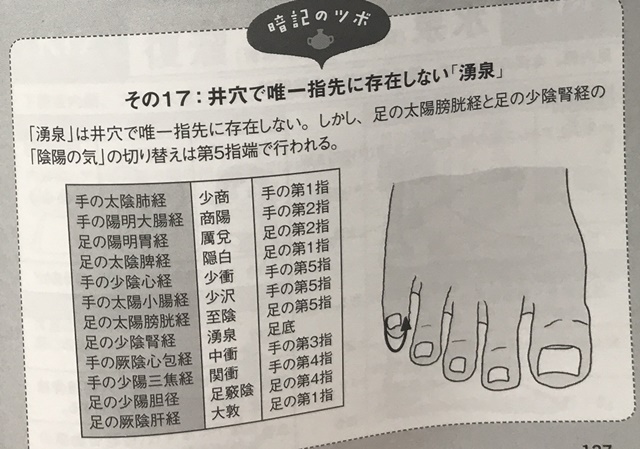 暗記のツボ
その17：井穴で唯一指先に存在しない「湧泉」
「湧泉」は井穴で唯一指先に存在しない。しかし、足の太陽膀胱経と足の少陰腎経の
「陰陽の気」の切り替えは第5指端で行われる。
手の太陰肺経 少商 手の第1指
手の陽明大腸経 商陽 手の第2指
足の陽明胃経 厲兌 足の第2指
足の太陰脾経 隠白 足の第1指
手の少陰心経 少衝 手の第5指
手の太陽小腸経 少沢 手の第5指
足の太陽膀胱経 至陰 足の第5指
足の少陰腎経 湧泉 足底
手の厥陰心包経 中衝 手の第3指
手の少陽三焦経 関衝 手の第4指
足の少陽胆径 足竅陰 足の第4指
足の厥陰肝経 大敦 足の第1指